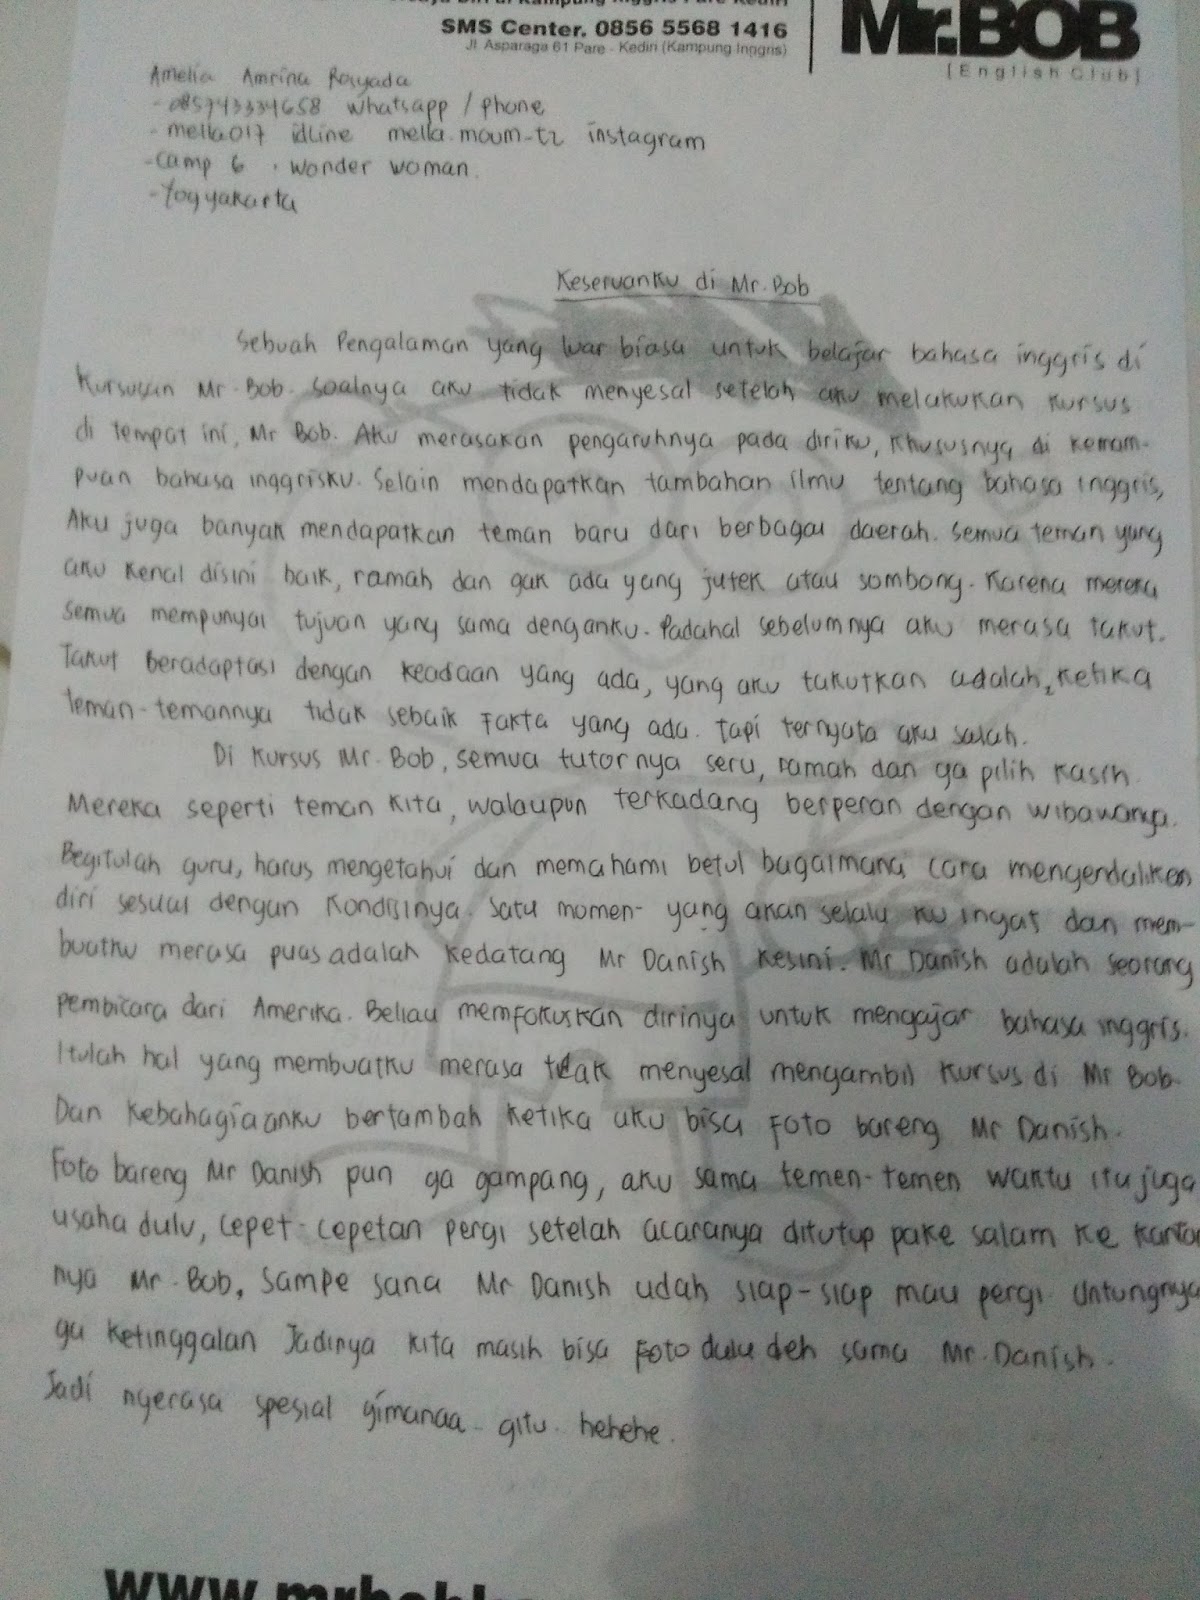 SMS Center. 0856 5568 1416
Jl. Asparaga 61 Pare - Kediri (Kampung Inggris)
Mr.BOB
[English Club]
Amelia Amrina Rosyada
- 085743334658 whatsapp / phone
- mella017 idline mella.moum-tz instagram
- Camp 6 . wonder woman.
- Yogyakarta
Keseruanku di Mr. Bob
Sebuah Pengalaman yang luar biasa untuk belajar bahasa inggris di
kursusan Mr. Bob. Soalnya aku tidak menyesal setelah aku melakukan kursus
di tempat ini, Mr Bob. Aku merasakan pengaruhnya pada diriku, khususnya di kemam-
puan bahasa inggrisku. Selain mendapatkan tambahan ilmu tentang bahasa inggris,
Aku juga banyak mendapatkan teman baru dari berbagai daerah. Semua teman yang
aku kenal disini baik, ramah dan gak ada yang jutek atau sombong. Karena mereka
semua mempunyai tujuan yang sama denganku. Padahal sebelumnya aku merasa takut.
Takut beradaptasi dengan keadaan yang ada, yang aku takutkan adalah, ketika
teman-temannya tidak sebaik fakta yang ada. tapi ternyata aku salah.
Di kursus Mr. Bob, semua tutornya seru, ramah dan ga pilih kasih.
Mereka seperti teman kita, walaupun terkadang berperan dengan wibawanya.
Begitulah guru, harus mengetahui dan memahami betul bagaimana cara mengendalikan
diri sesuai dengan kondisinya. Satu momen- yang akan selalu ku ingat dan mem-
buatku merasa puas adalah kedatang Mr Danish kesini. Mr Danish adalah seorang
pembicara dari Amerika. Beliau memfokuskan dirinya untuk mengajar bahasa inggris.
Itulah hal yang membuatku merasa tidak menyesal mengambil kursus di Mr Bob.
Dan kebahagiaanku bertambah ketika aku bisa foto bareng Mr Danish.
Foto bareng Mr Danish pun ga gampang, aku sama temen-temen waktu itu juga
usaha dulu, cepet-cepetan pergi setelah acaranya ditutup pake salam ke kantor
nya Mr. Bob, Sampe sana Mr Danish udah siap-siap mau pergi. Untungnya
ga ketinggalan Jadinya kita masih bisa foto dulu deh sama Mr. Danish.
Jadi ngerasa spesial gimanaa gitu. hehehe.